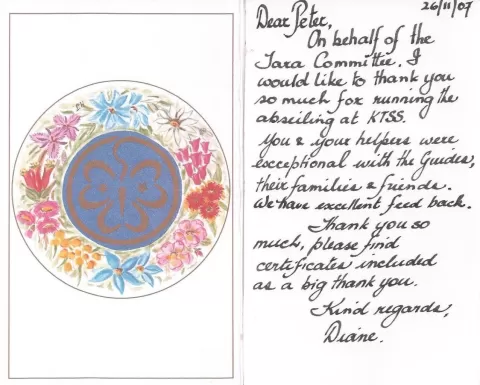 26/11/07
Dear Peter,
On behalf of the
Tara Committee. I
would like to thank you
so much for running the
abseiling at KTSS.
You & your helpers were
exceptional with the Guides,
their families & friends.
We have excellent feed back.
Thank you so
much, please find
certificates included
as a big thank you.
Kind regards,
Diane.